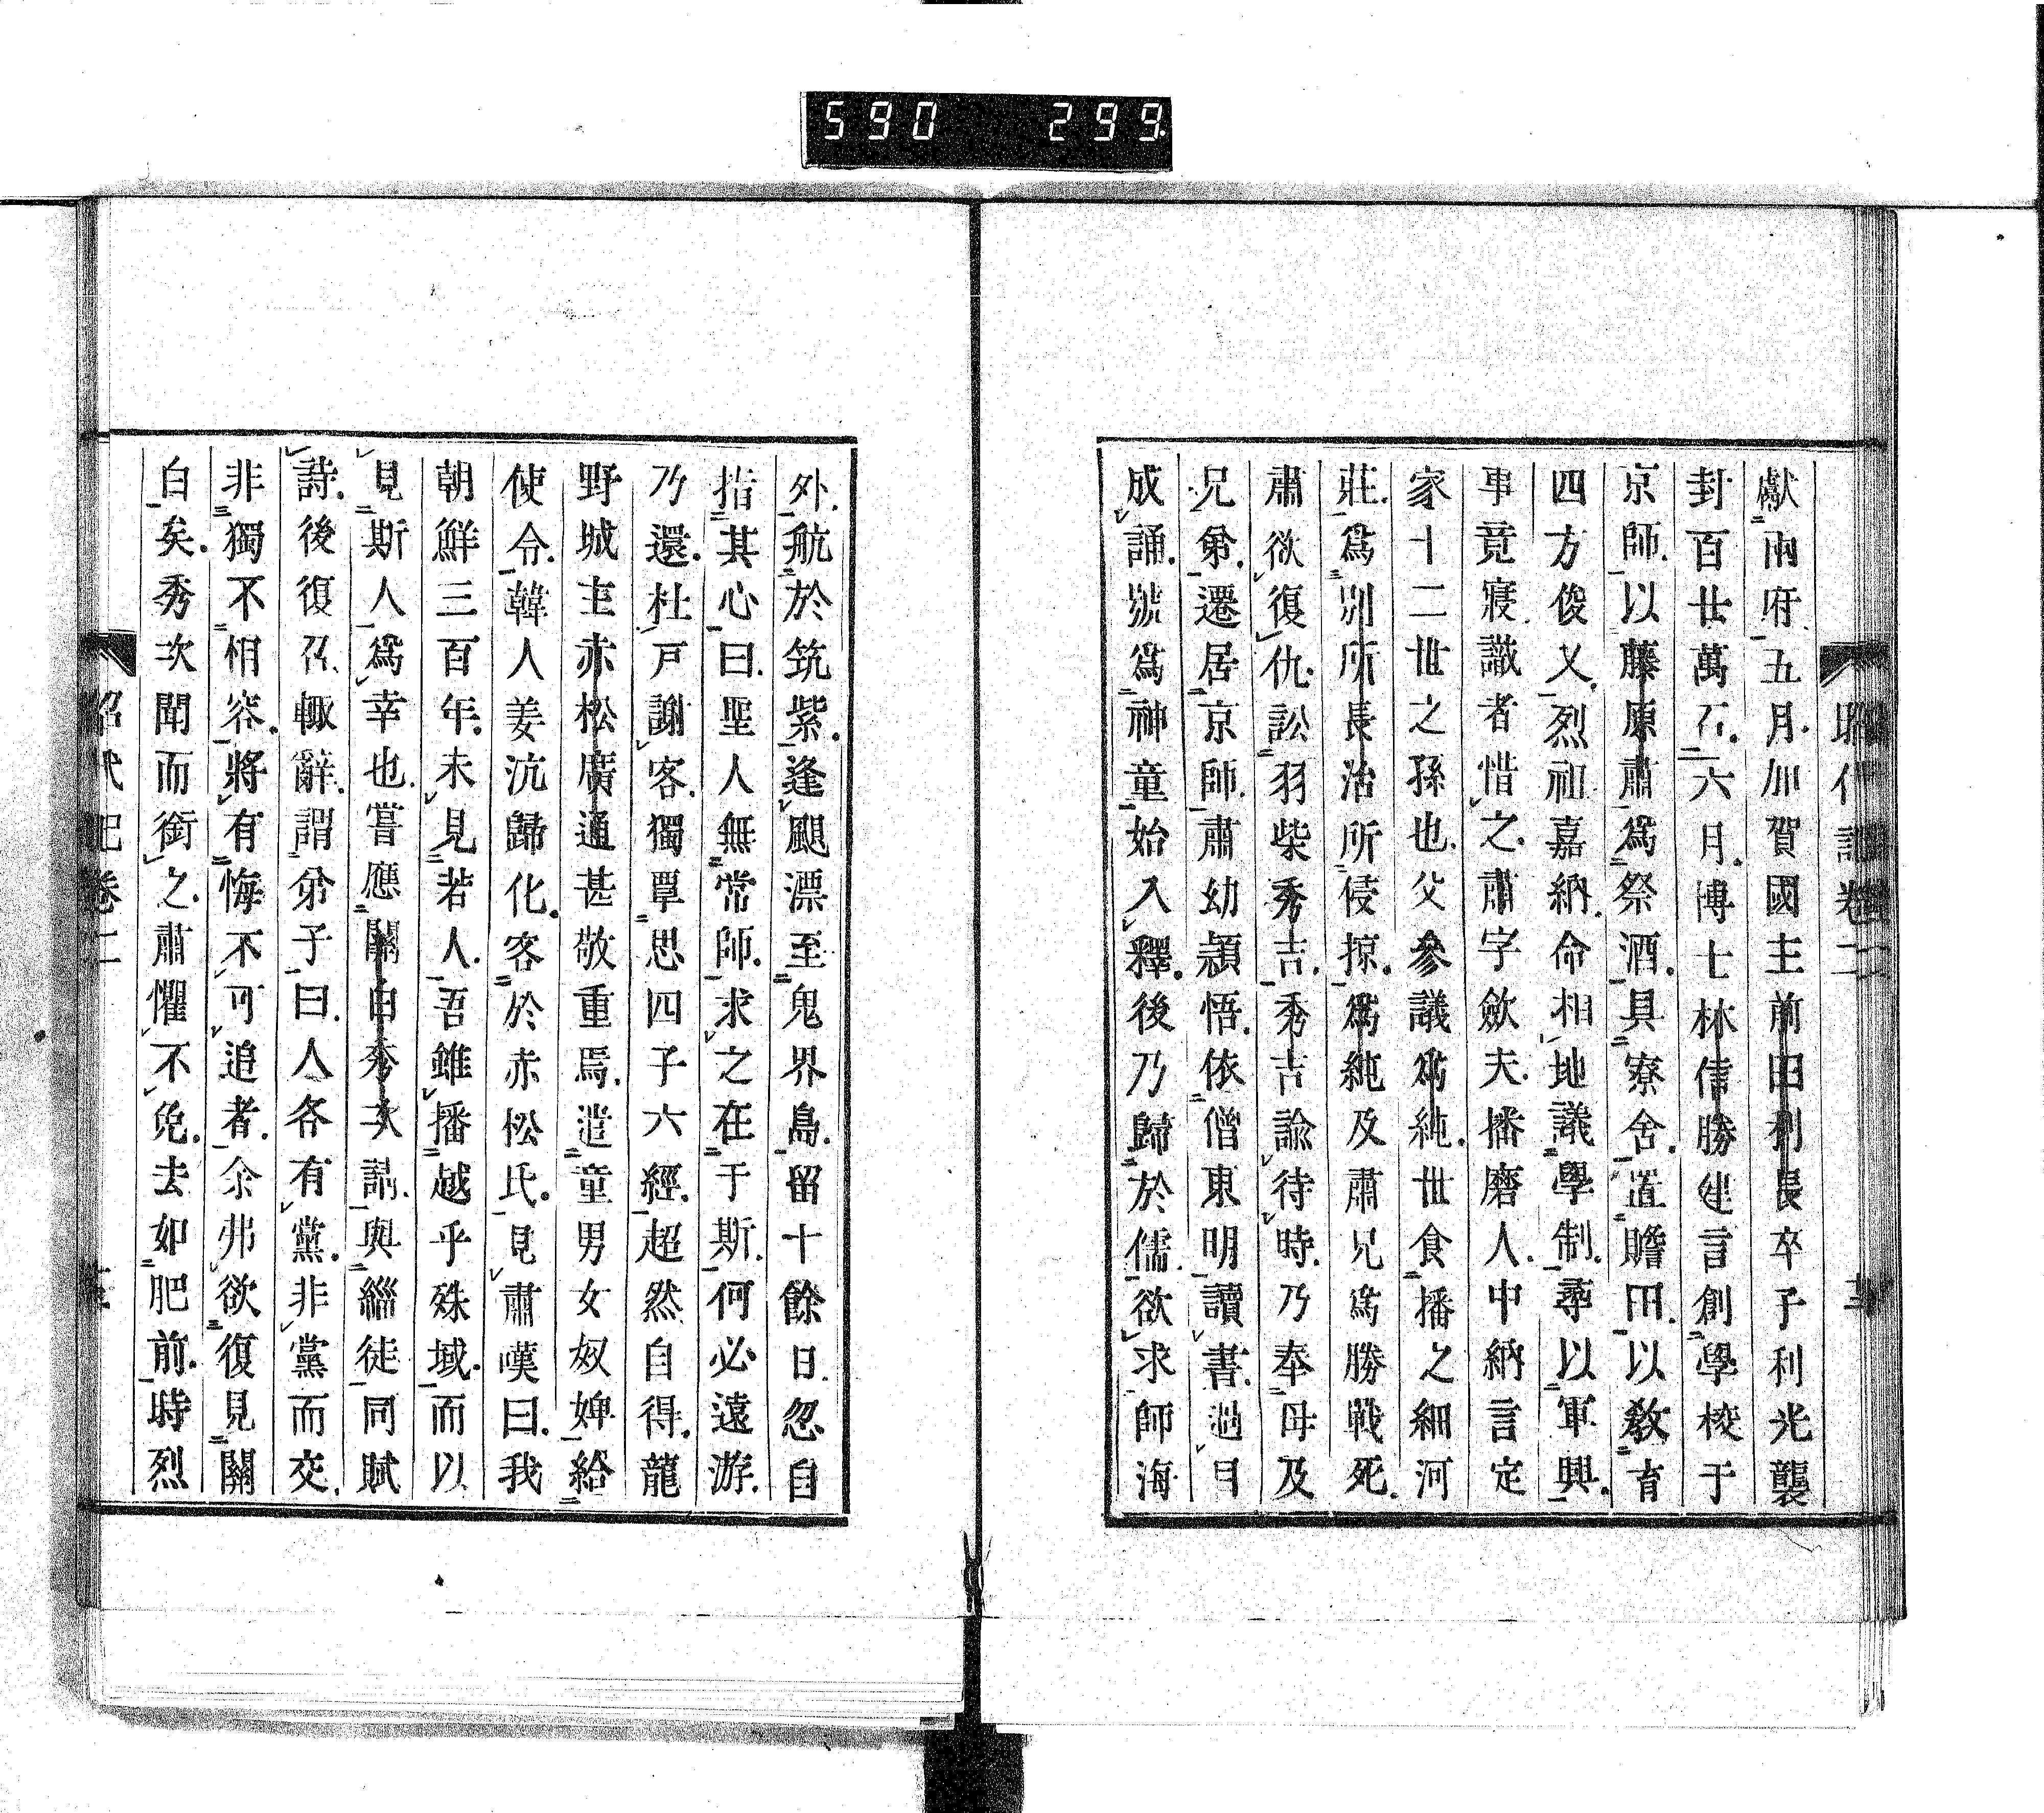 590 299
昭代記卷二
獻兩府五月加賀國主前田利長卒子利光襲
封百廿萬石六月博士林信勝建言創學校于
京師以藤原肅爲祭酒具寮舍置贍田以敎育
四方俊乂烈祖嘉納命相地議學制尋以軍興
事竟寢識者惜之肅字歛夫播磨人中納言定
家十二世之孫也父參議爲純世食播之細河
莊爲別所長治所侵掠爲純及肅兄爲勝戰死
肅欲復仇訟羽柴秀吉秀吉諭待時乃奉母及
兄弟遷居京師肅幼穎悟依僧東明讀書過目
成誦號爲神童始入釋後乃歸於儒欲求師海
外航於筑紫逢颶漂至鬼界島留十餘日忽自
指其心曰聖人無常師求之在于斯何必遠游
乃還杜戸謝客獨覃思四子六經超然自得龍
野城主赤松廣通甚敬重焉遣童男女奴婢給
使令韓人姜沆歸化客於赤松氏見肅嘆曰我
朝鮮三百年未見若人吾雖播越乎殊域而以
見斯人爲幸也嘗應關白秀次招與緇徒同賦
詩後復召輙辭謂弟子曰人各有黨非黨而交
非獨不相容將有悔不可追者余弗欲復見關
白矣秀次聞而銜之肅懼不免去如肥前時烈
昭代記卷二